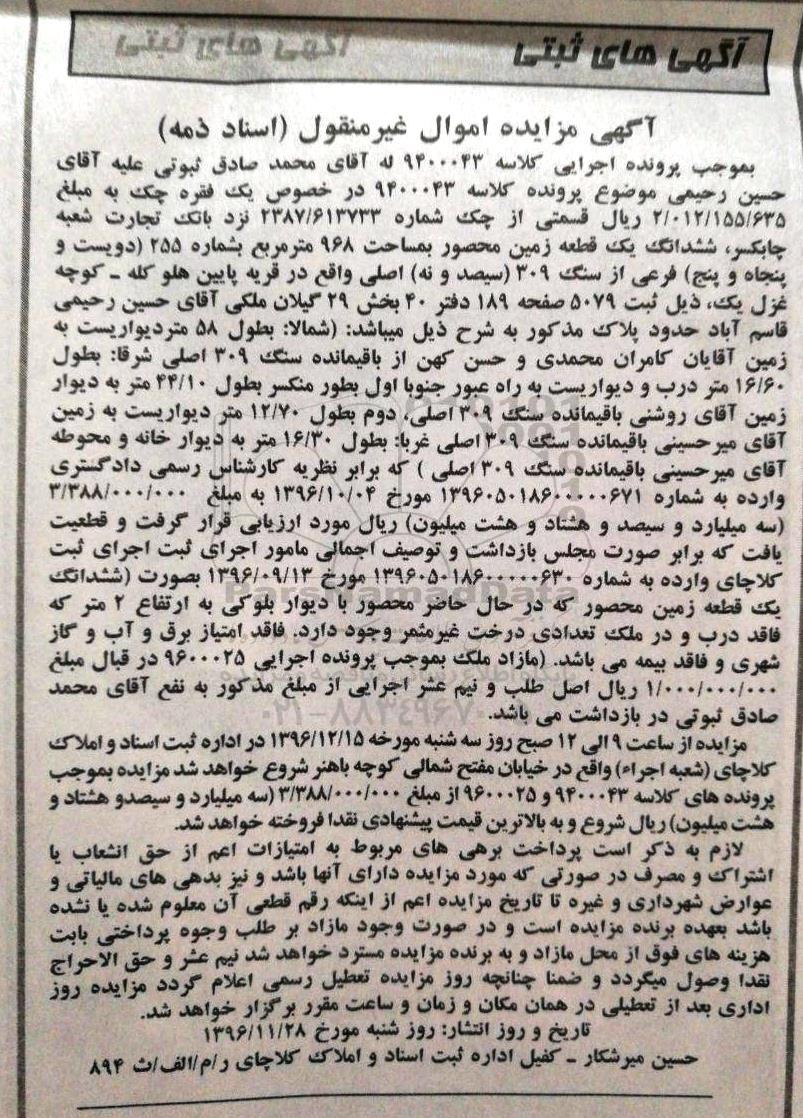 آگهی های ثبتی
آگهی مزایده اموال غیرمنقول (اسناد ذمه)
بموجب پرونده اجرایی کلاسه ۹۴۰۰۰۴۳ له آقای محمد صادق ثبوتی علیه آقای
حسین رحیمی موضوع پرونده کلاسه ۹۴۰۰۰۴۳ در خصوص یک فقره چک به مبلغ
۲/۰۱۲/۱۵۵/۶۳۵ ریال قسمتی از چک شماره ۲۳۸۷/۶۱۳۷۳۳ نزد بانک تجارت شعبه
چابکسر، ششدانگ یک قطعه زمین محصور بمساحت ۹۶۸ مترمربع بشماره ۲۵۵ (دویست و
پنجاه و پنج) فرعی از سنگ ۳۰۹ (سیصد و نه) اصلی واقع در قریه پایین هلو کله ـ کوچه
غزل یک، ذیل ثبت ۵۰۷۹ صفحه ۱۸۹ دفتر ۴۰ بخش ۲۹ گیلان ملکی آقای حسین رحیمی
قاسم آباد حدود پلاک مذکور به شرح ذیل میباشد: (شمالا: بطول ۵۸ متردیواریست به
زمین آقایان کامران محمدی و حسن کهن از باقیمانده سنگ ۳۰۹ اصلی شرقا: بطول
۱۶/۶۰ متر درب و دیواریست به راه عبور جنوبا اول بطور منکسر بطول ۴۴/۱۰ متر به دیوار
زمین آقای روشنی باقیمانده سنگ ۳۰۹ اصلی، دوم بطول ۱۲/۷۰ متر دیواریست به زمین
آقای میرحسینی باقیمانده سنگ ۳۰۹ اصلی غربا: بطول ۱۶/۳۰ متر به دیوار خانه و محوطه
آقای میرحسینی باقیمانده سنگ ۳۰۹ اصلی ) که برابر نظریه کارشناس رسمی دادگستری
وارده به شماره ۱۳۹۶۰۵۰۱۸۶۰۰۰۰۰۶۷۱ مورخ ۱۳۹۶/۱۰/۰۴ به مبلغ ۳/۳۸۸/۰۰۰/۰۰۰
(سه میلیارد و سیصد و هشتاد و هشت میلیون) ریال مورد ارزیابی قرار گرفت و قطعیت
یافت که برابر صورت مجلس بازداشت و توصیف اجمالی مامور اجرای ثبت اجرای ثبت
کلاچای وارده به شماره ۱۳۹۶۰۵۰۱۸۶۰۰۰۰۰۶۳۰ مورخ ۱۳۹۶/۰۹/۱۳ بصورت (ششدانگ
یک قطعه زمین محصور که در حال حاضر محصور با دیوار بلوکی به ارتفاع ۲ متر که
فاقد درب و در ملک تعدادی درخت غیرمثمر وجود دارد. فاقد امتیاز برق و آب و گاز
شهری و فاقد بیمه می باشد. (مازاد ملک بموجب پرونده اجرایی ۹۶۰۰۰۲۵ در قبال مبلغ
۱/۰۰۰/۰۰۰/۰۰۰ ریال اصل طلب و نیم عشر اجرایی از مبلغ مذکور به نفع آقای محمد
صادق ثبوتی در بازداشت می باشد.
مزایده از ساعت ۹ الی ۱۲ صبح روز سه شنبه مورخه ۱۳۹۶/۱۲/۱۵ در اداره ثبت اسناد و املاک
کلاچای (شعبه اجراء) واقع در خیابان مفتح شمالی کوچه باهنر شروع خواهد شد مزایده بموجب
پرونده های کلاسه ۹۴۰۰۰۴۳ و ۹۶۰۰۰۲۵ از مبلغ ۳/۳۸۸/۰۰۰/۰۰۰ (سه میلیارد و سیصدو هشتاد و
هشت میلیون) ریال شروع و به بالاترین قیمت پیشنهادی نقدا فروخته خواهد شد.
لازم به ذکر است پرداخت برهی های مربوط به امتیازات اعم از حق انشعاب یا
اشتراک و مصرف در صورتی که مورد مزایده دارای آنها باشد و نیز بدهی های مالیاتی و
عوارض شهرداری و غیره تا تاریخ مزایده اعم از اینکه رقم قطعی آن معلوم شده یا نشده
باشد بعهده برنده مزایده است و در صورت وجود مازاد بر طلب وجوه پرداختی بابت
هزینه های فوق از محل مازاد و به برنده مزایده مسترد خواهد شد نیم عشر و حق الاحراج
نقدا وصول میگردد و ضمنا چنانچه روز مزایده تعطیل رسمی اعلام گردد مزایده روز
اداری بعد از تعطیلی در همان مکان و زمان و ساعت مقرر برگزار خواهد شد.
تاریخ و روز انتشار: روز شنبه مورخ ۱۳۹۶/۱۱/۲۸
حسین میرشکار ـ کفیل اداره ثبت اسناد و املاک کلاچای ر/م/الف/ث ۸۹۴